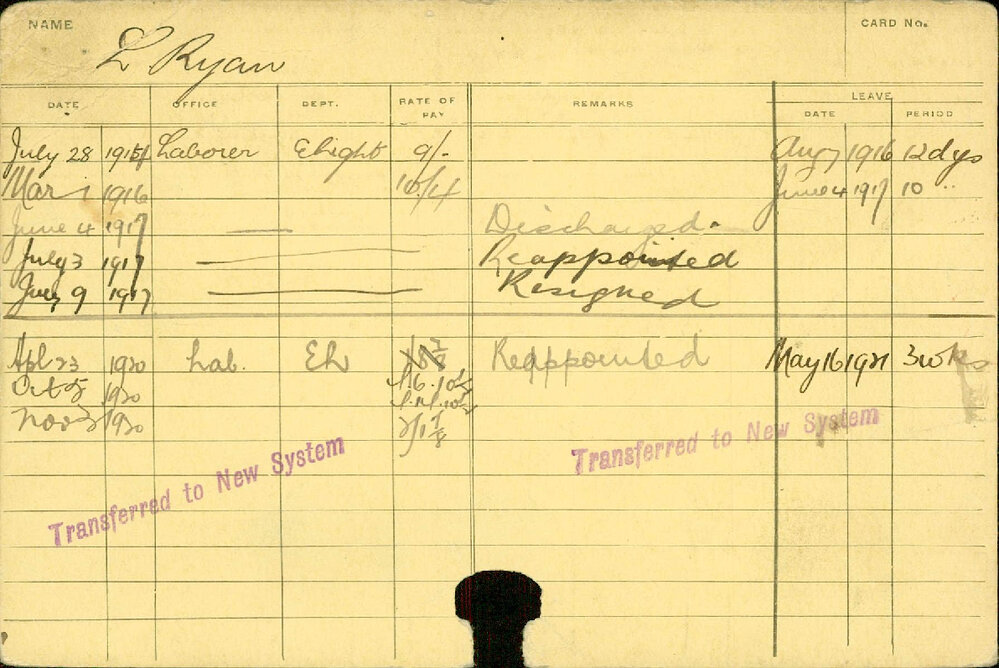 NAME
CARD No.
L Ryan
DATE OFFICE DEPT. RATE OF PAY REMARKS LEAVE
DATE PERIOD
July 28 1915 Laborer Elight 9/- Aug 7 1916 12 dys
Mar 1 1916 10/4 June 4 1917 10 "
June 4 1917 — Discharged.
July 3 1917 — Reappointed
July 9 1917 — Resigned
Apl 23 1920 Lab. El Reappointed May 16 1921 3 wks
Oct 5 1920
Nov 1920
Transferred to New System
Transferred to New System